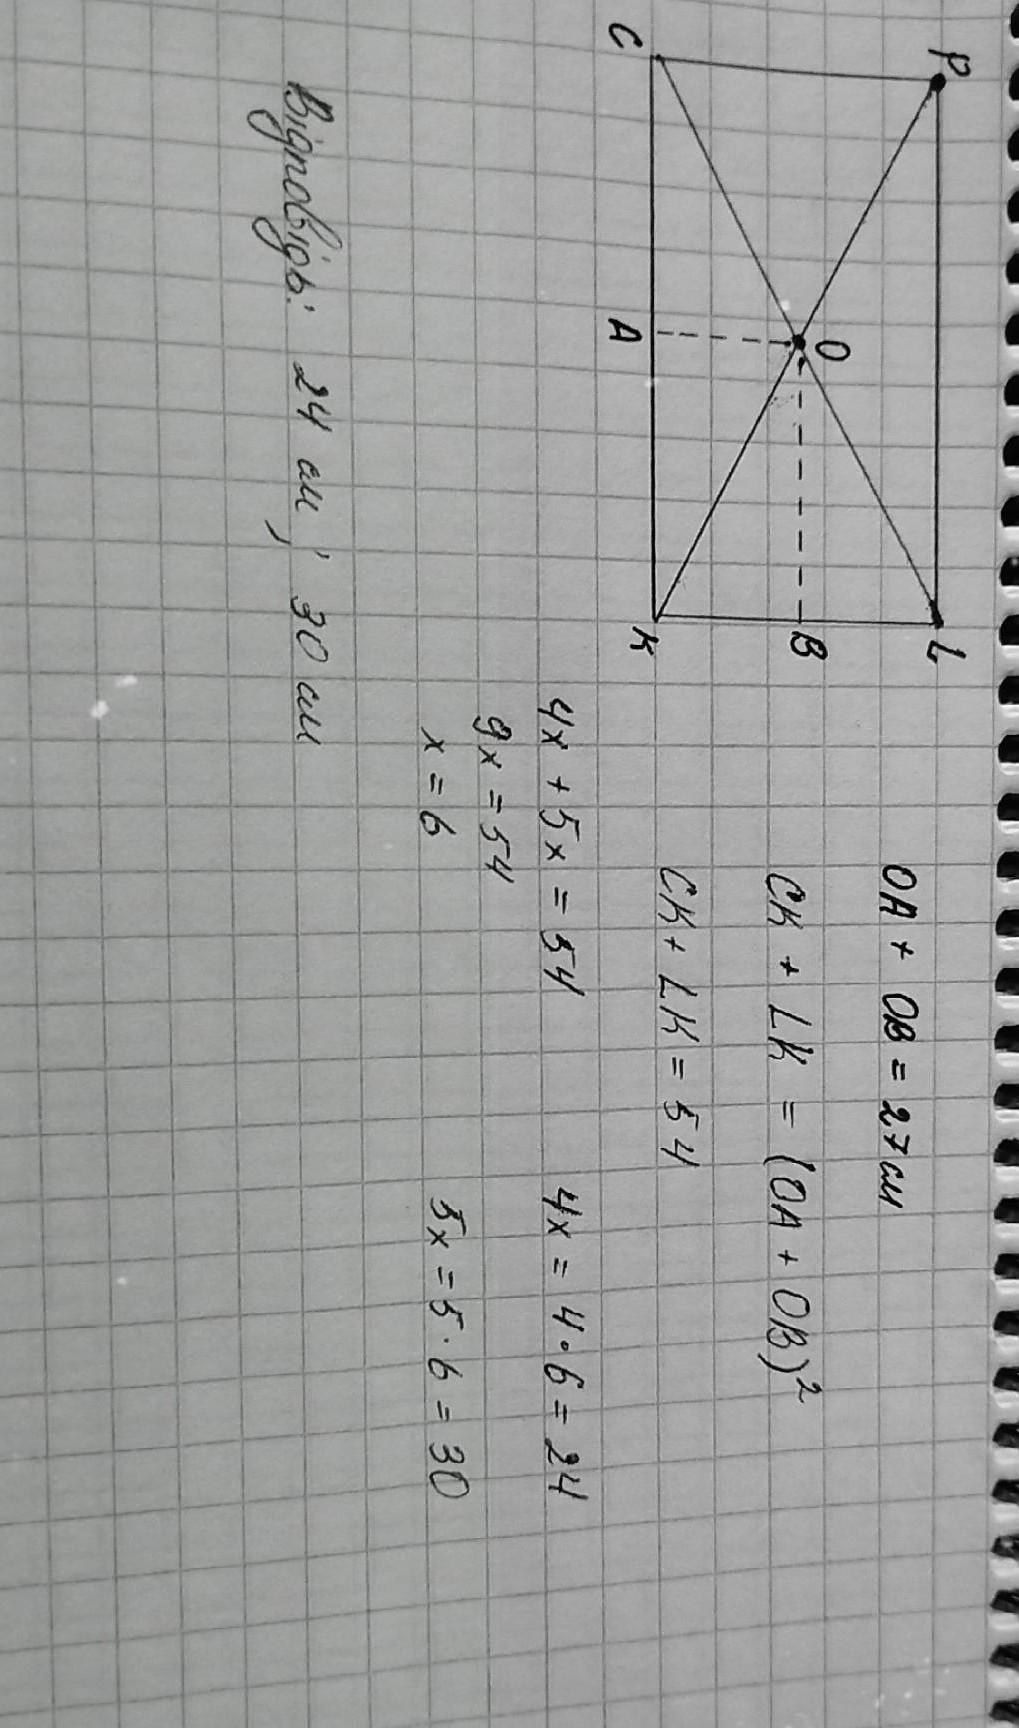 P L
O
B
C A K
OA + OB = 27 см
CK + LK = (OA + OB)²
CK + LK = 54
4x + 5x = 54
9x = 54
x = 6
4x = 4 · 6 = 24
5x = 5 · 6 = 30
Відповідь: 24 см; 30 см